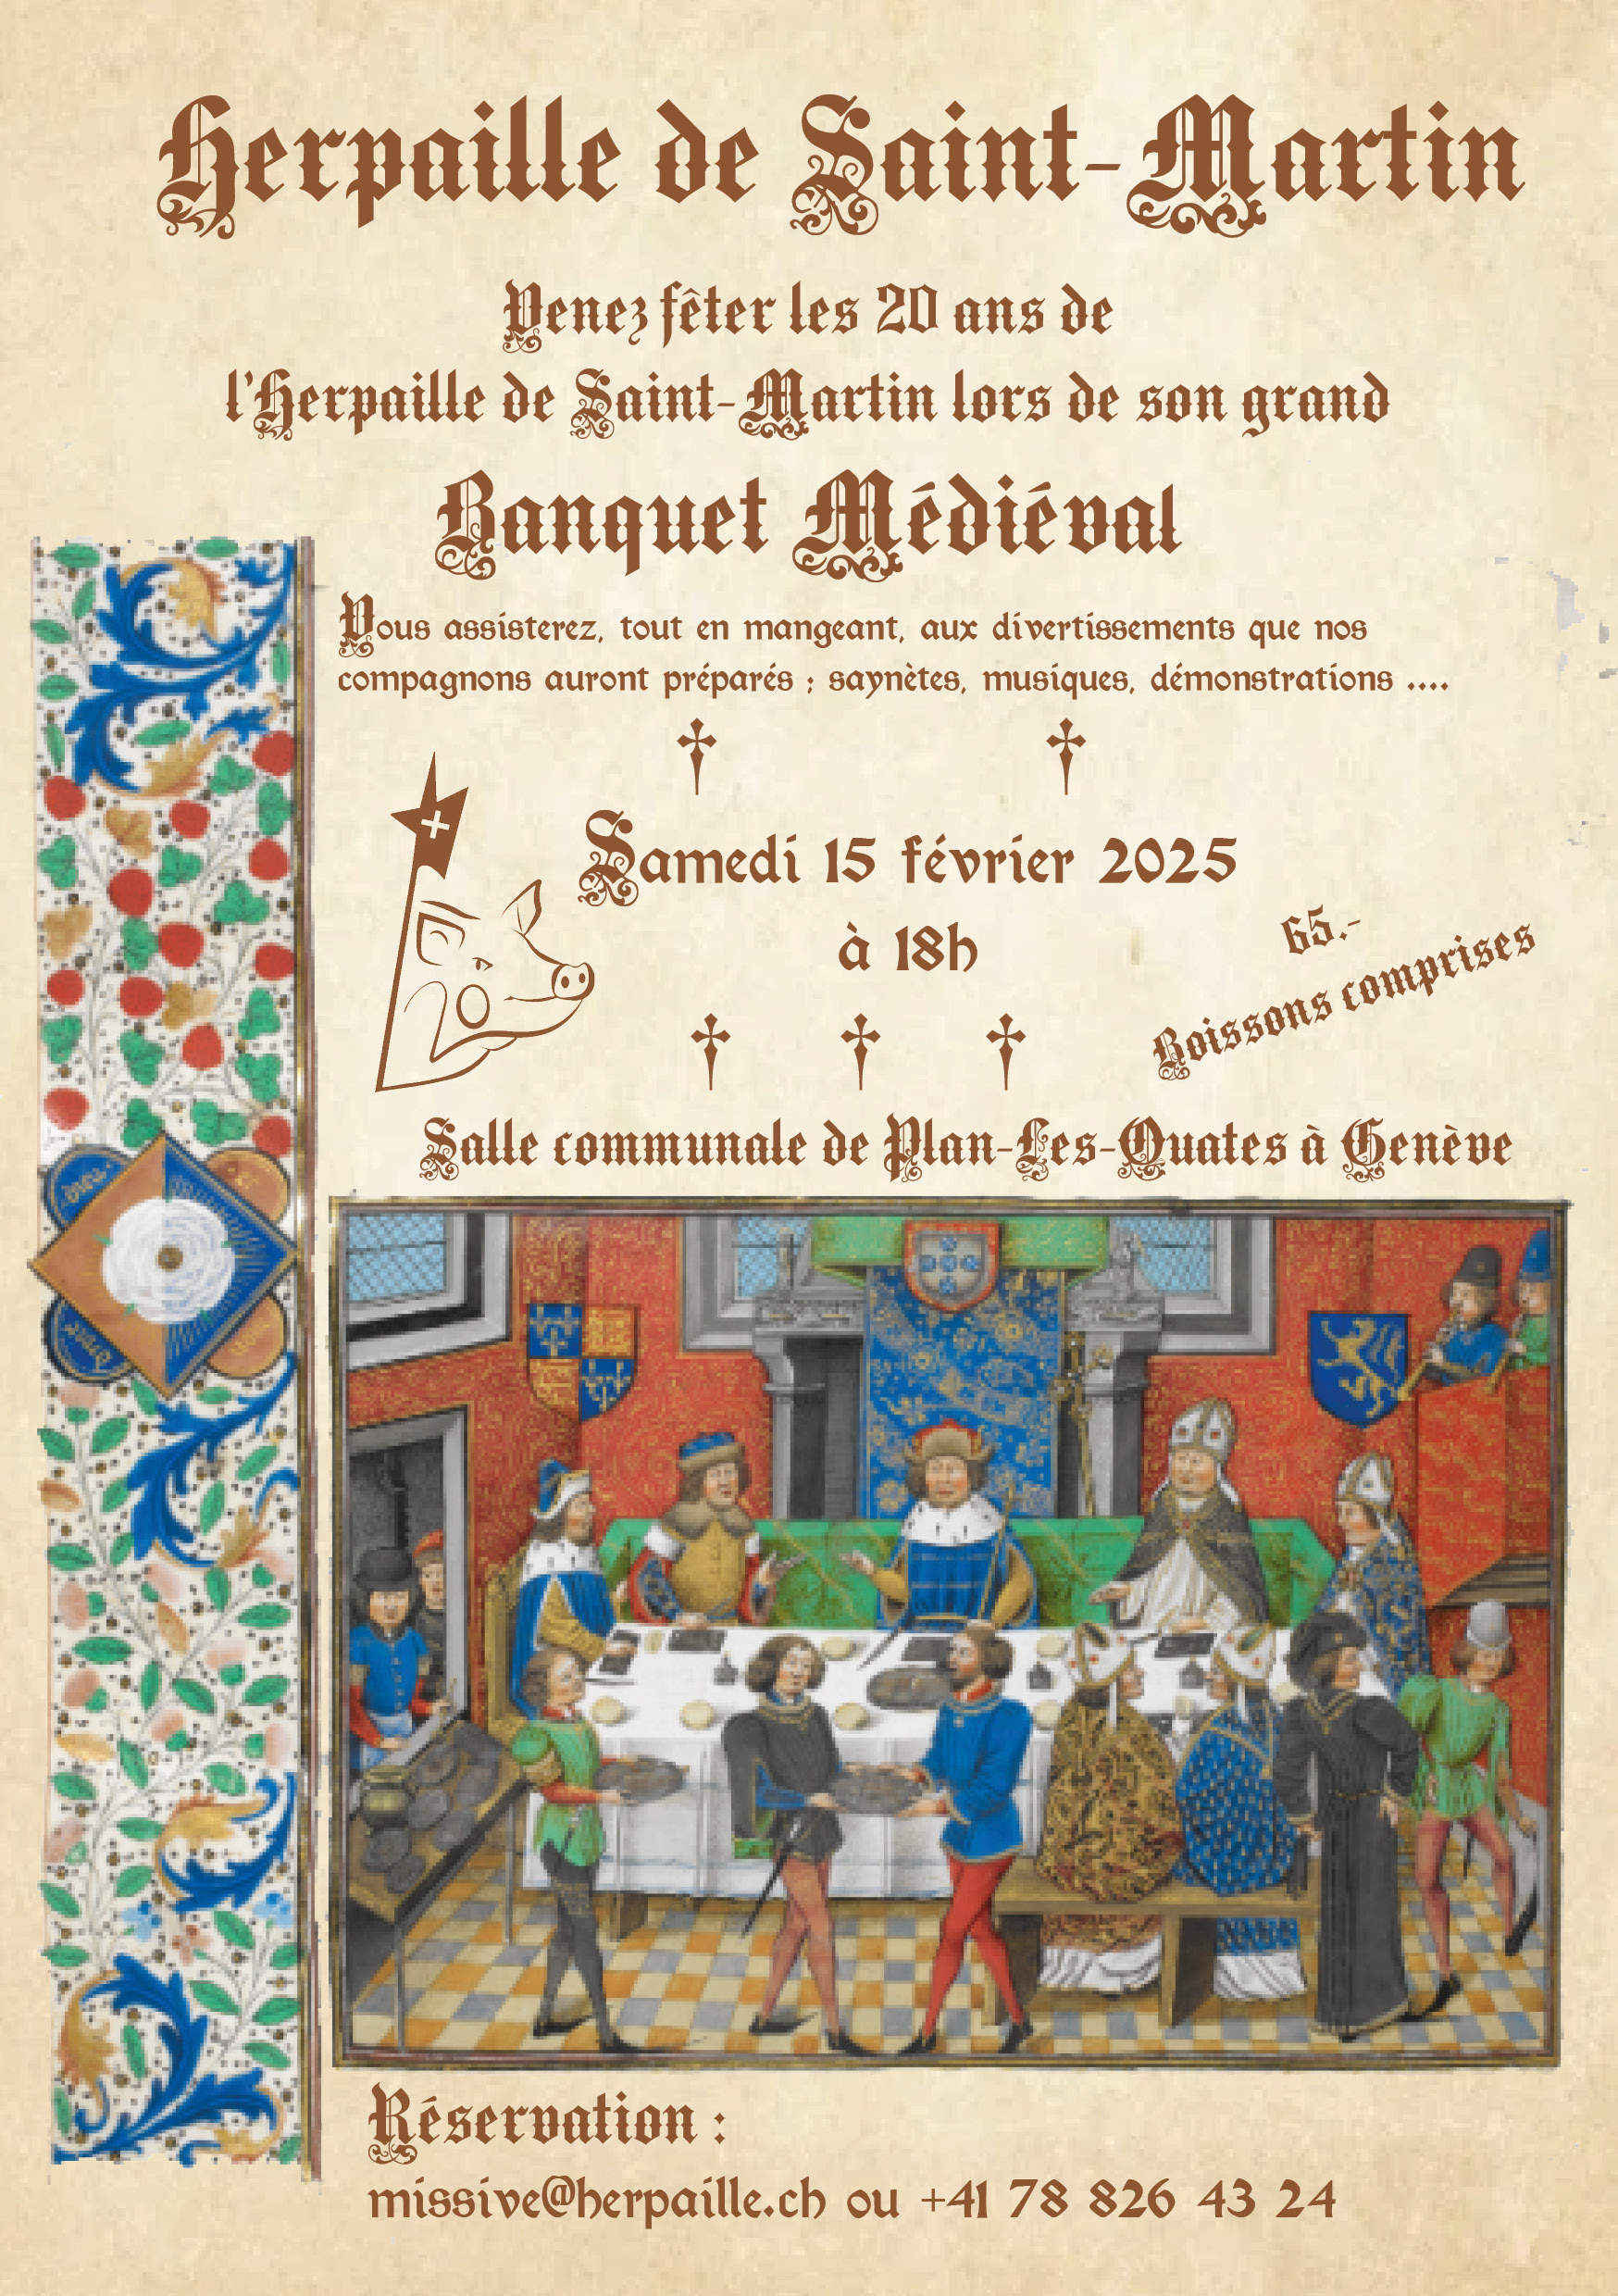 Herpaille de Saint-Martin
Venez fêter les 20 ans de
l'Herpaille de Saint-Martin lors de son grand
Banquet Médiéval
Vous assisterez, tout en mangeant, aux divertissements que nos
compagnons auront préparés ; saynètes, musiques, démonstrations ....
Samedi 15 février 2025
à 18h
65.-
Boissons comprises
Salle communale de Plan-Les-Quates à Genève
Réservation :
missive@herpaille.ch ou +41 78 826 43 24